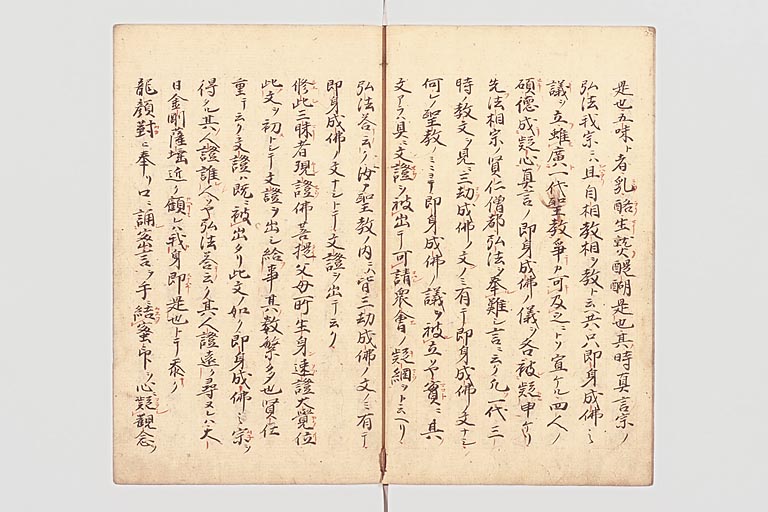 是也五味ト者乳酪生熟醍醐是也其時真言宗ノ
弘法我宗ニハ且自相教相ヲ教ト云共ロハ即身成佛ノ
議ヲ立雖廣一代聖教爭カ可及之ニトソ宣ケル四人ノ
碩徳成疑心真言ノ即身成佛ノ儀ヲ各被疑申ケリ
先法相宗ノ賢仁僧都弘法ヲ奉難シ言ニ云ク凡一代三
時ノ教文ヲ見ニ三劫成佛ノ文ノミ有テ即身成佛ノ文ナシ
何レノ聖教ノミニヨテ即身成佛ノ議ヲ被立ソヤ實ニ其
文アラハ具ニ文證ヲ被出テ可請衆會ノ疑網ヲト云ヘリ
弘法答云ク汝カ聖教ノ内ニハ皆三劫成佛ノ文ノミ有テ
即身成佛ノ文ナシトテ文證ヲ出テ云ク
修此三昧者現證佛菩提父母所生身速證大覺位
此文ヲ初トシテ文證ヲ出シ給事其數繁多也賢仁
重テ云ク文證ハ既ニ被出タリ此文ノ如ノ即身成佛ノ宗ヲ
得タル其人證誰人ソヤ弘法答云ク其人證遠ク尋ヌレハ大
日金剛薩埵近ク顧レハ我身即是也トテ忝ク
龍顔對ニ奉リ口ニ誦密言ヲ手結蜜印ヲ心疑觀念ヲ